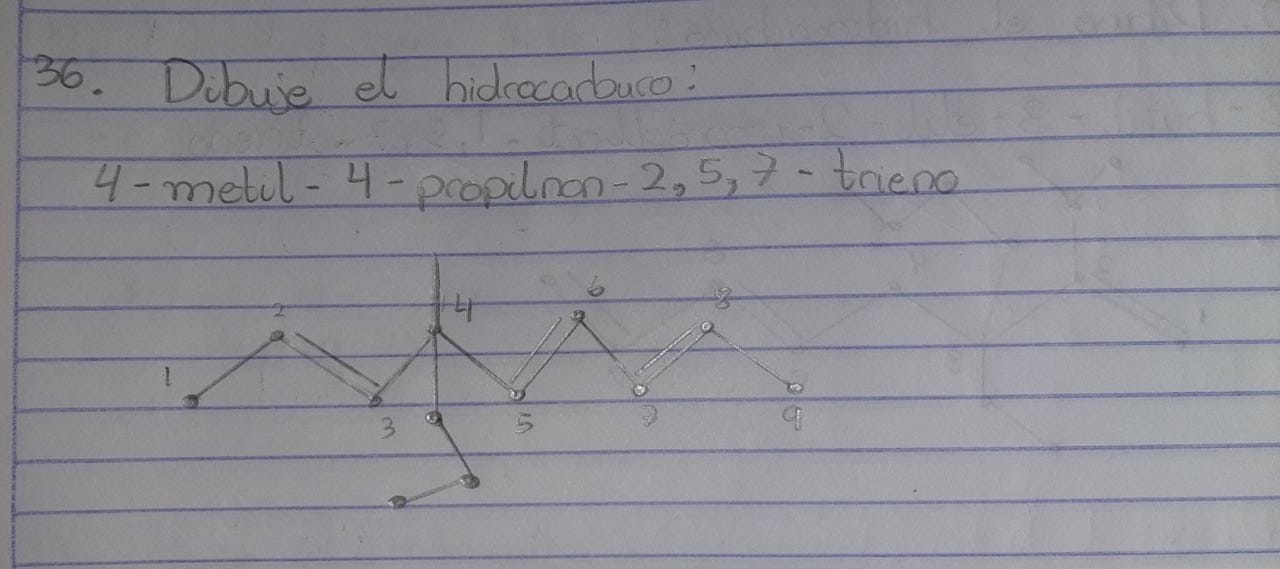 36. Dibuje el hidrocarburo:
4-metil-4-propilnon-2,5,7-trieno
1 2 3 4 5 6 7 8 9